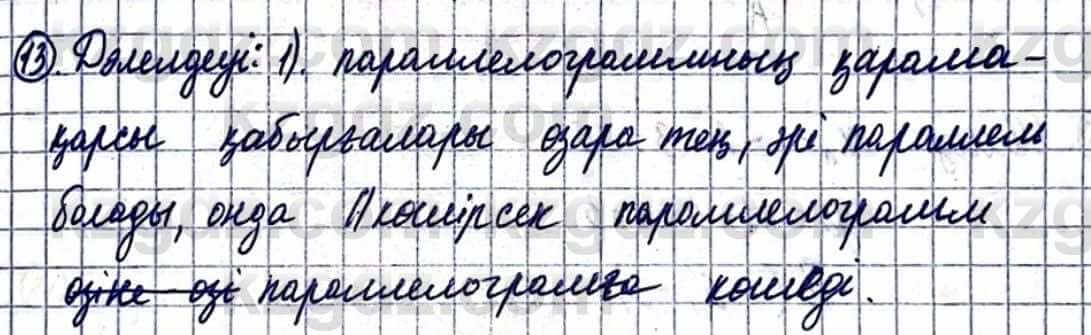 13. Дәлелдеуі: 1). параллелограммның қарама-
қарсы қабырғалары өзара тең, әрі параллель
болады, онда ||көшірсек параллелограмм
өзіне өзі параллелограмға көшеді.